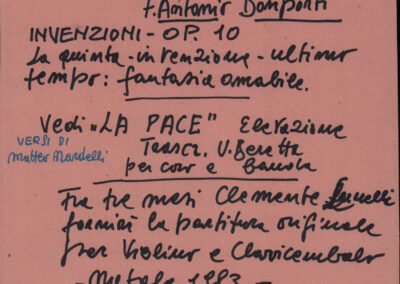 f. Antonio Bonporti
INVENZIONI - OP. 10
La quinta - invenzione - ultimo
tempo: fantasia amabile.
Vedi "LA PACE" Elevazione
VERSI DI
Matteo Nardelli
Trascr. V. Beretta
per coro e banda
Fra tre mesi Clemente Lunelli
fornirà la partitura originale
per Violino e Clavicembalo
- Natale 1983 -